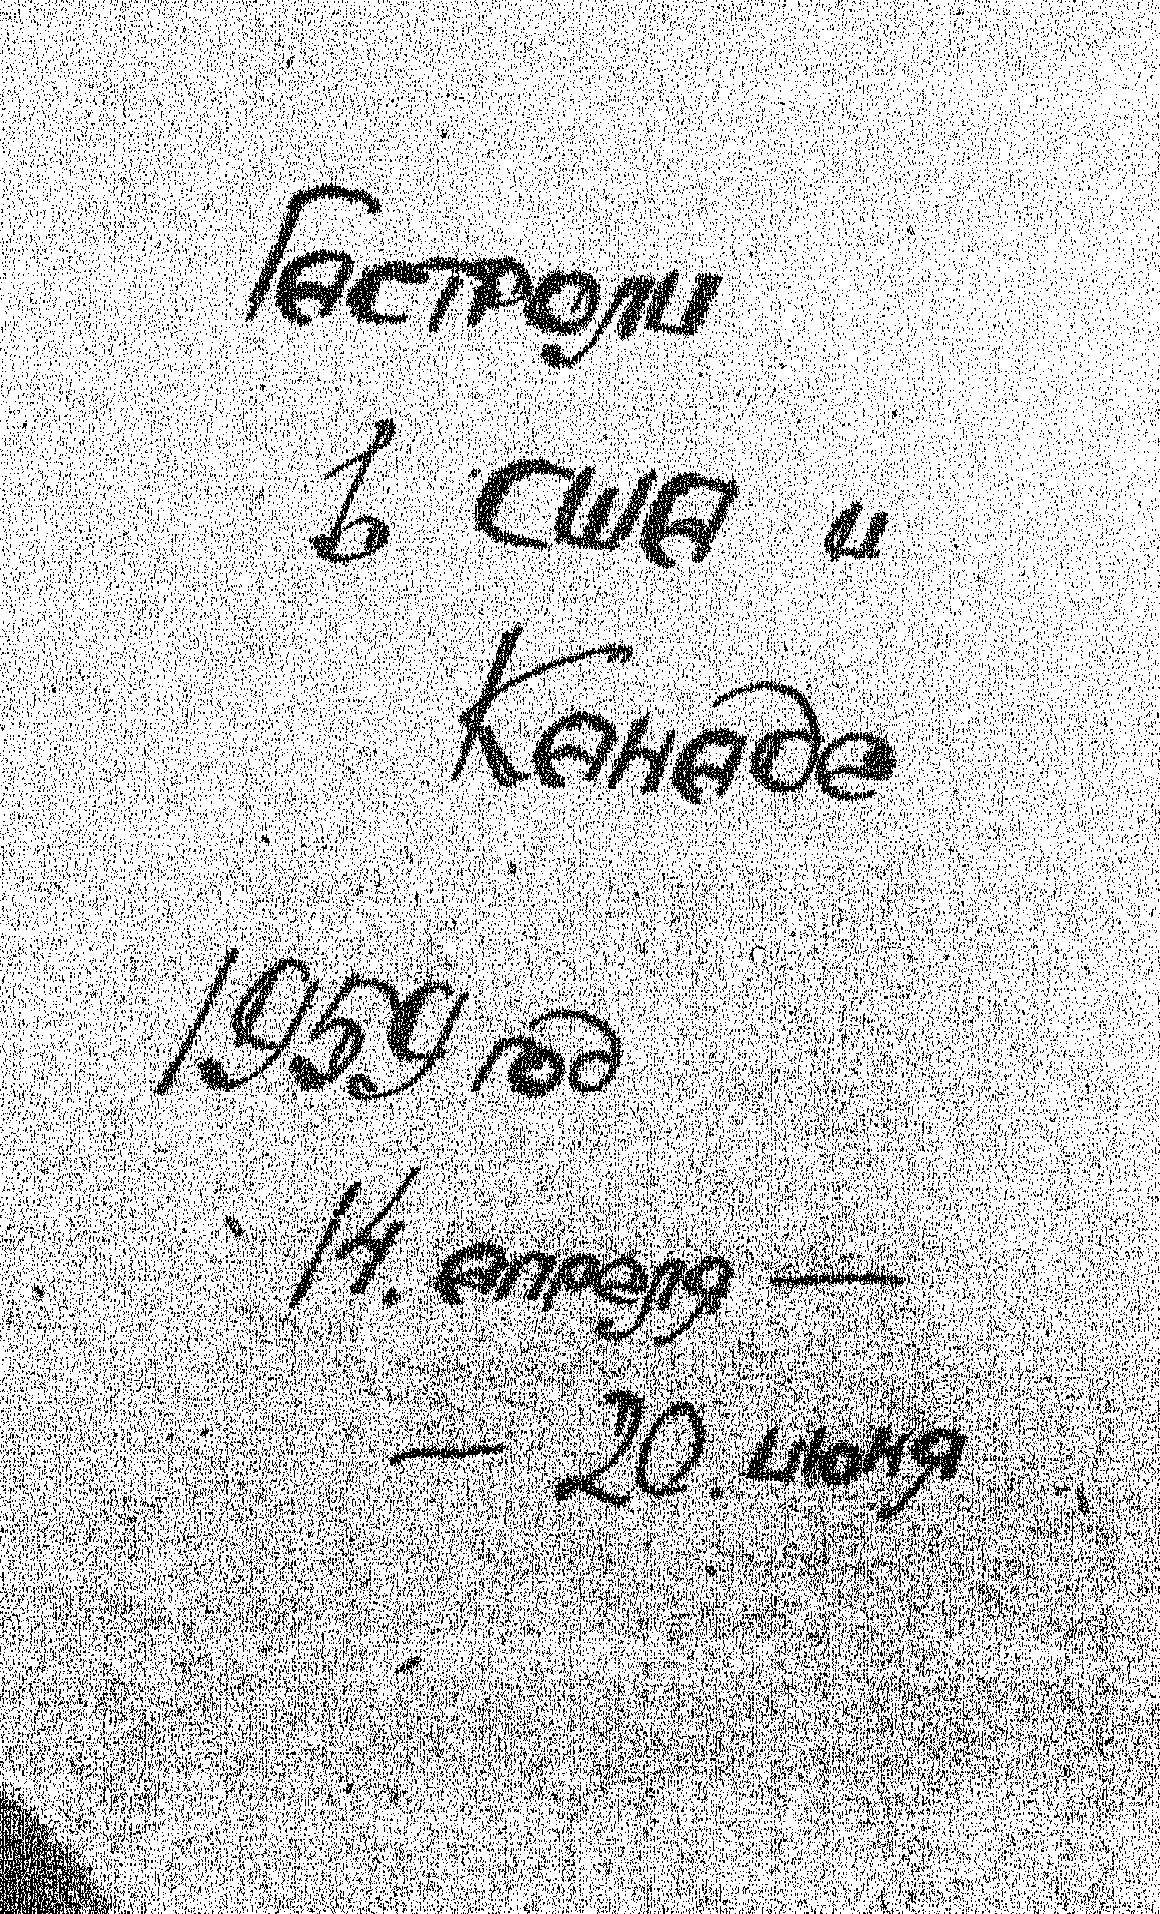 Гастроли
в США и
Канаде
1959 год
14. апреля —
— 20. июня